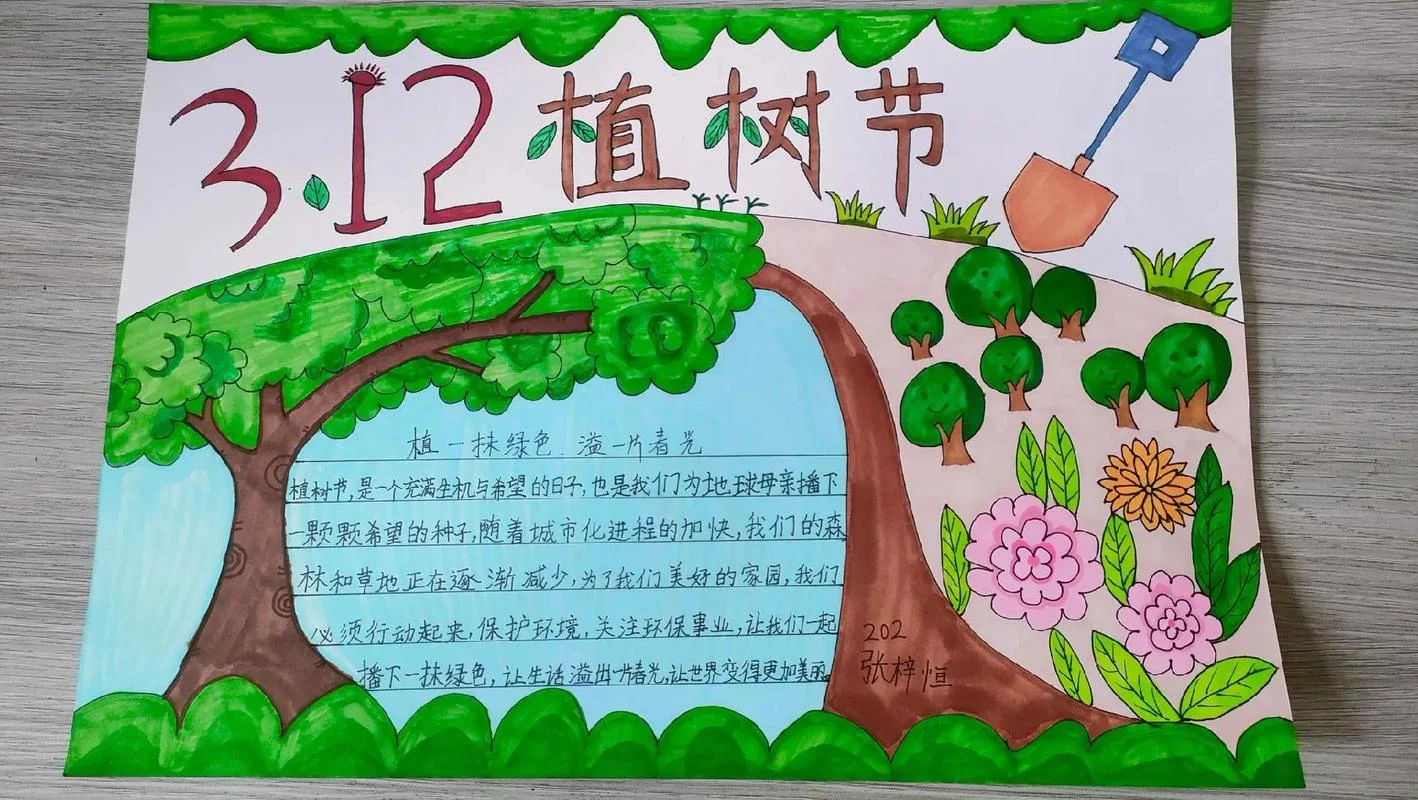 3.12 植树节
植一抹绿色.溢一片春光
植树节,是一个充满生机与希望的日子,也是我们为地球母亲播下
一颗颗希望的种子,随着城市化进程的加快,我们的森
林和草地正在逐渐减少,为了我们美好的家园,我们
必须行动起来,保护环境,关注环保事业,让我们一起
播下一抹绿色,让生活溢出一片春光,让世界变得更加美丽。
202
张梓恒